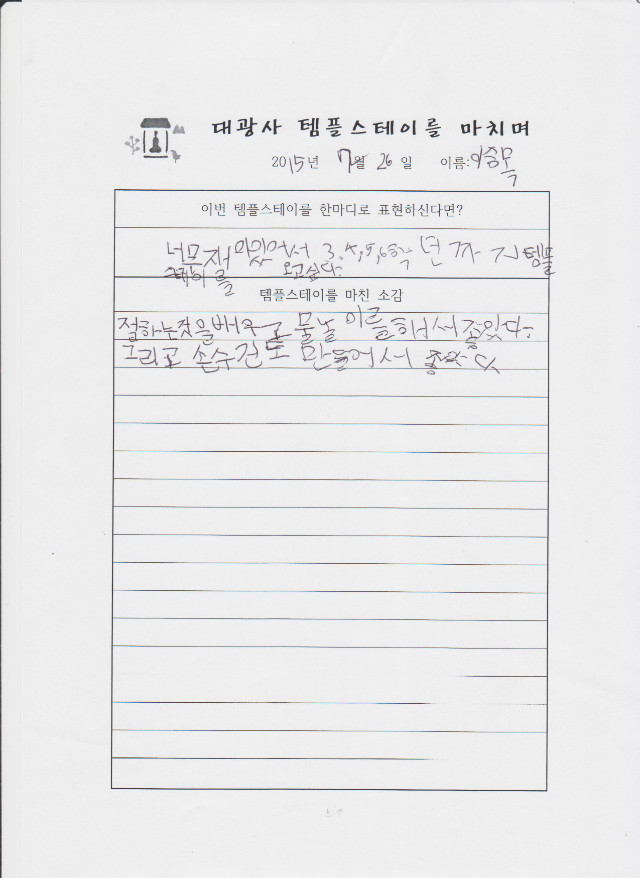 대광사 템플스테이를 마치며
2015년 7월 26일 이름:이승목
이번 템플스테이를 한마디로 표현하신다면?
너무 재미있어서 3,4,5,6학년까지 템플
스테이를 오고싶다.
템플스테이를 마친 소감
절하는것을배우고 물놀이를 해서 좋았다.
그리고 손수건도 만들어서 좋았다